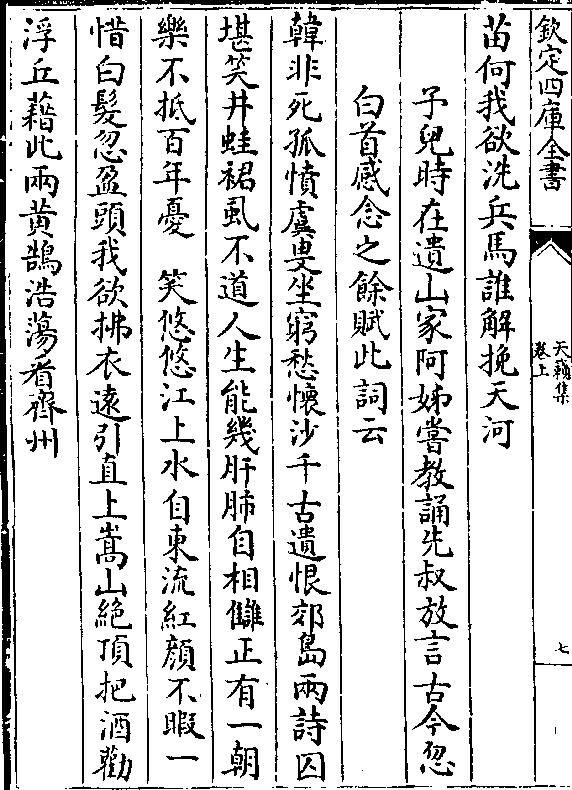 欽定四庫全書
天籟集
卷上
七
苗何我欲洗兵馬誰解挽天河
予兒時在遺山家阿姊嘗教誦先叔放言古今忽
白首感念之餘賦此詞云
韓非死孤憤虞叟坐窮愁懷沙千古遺恨郊島兩詩囚
堪笑井蛙裙虱不道人生能幾肝肺自相讎正有一朝
樂不抵百年憂　笑悠悠江上水自東流紅顔不暇一
惜白髮忽盈頭我欲拂衣遠引直上嵩山絶頂把酒勸
浮丘藉此兩黄鵠浩蕩看齊州